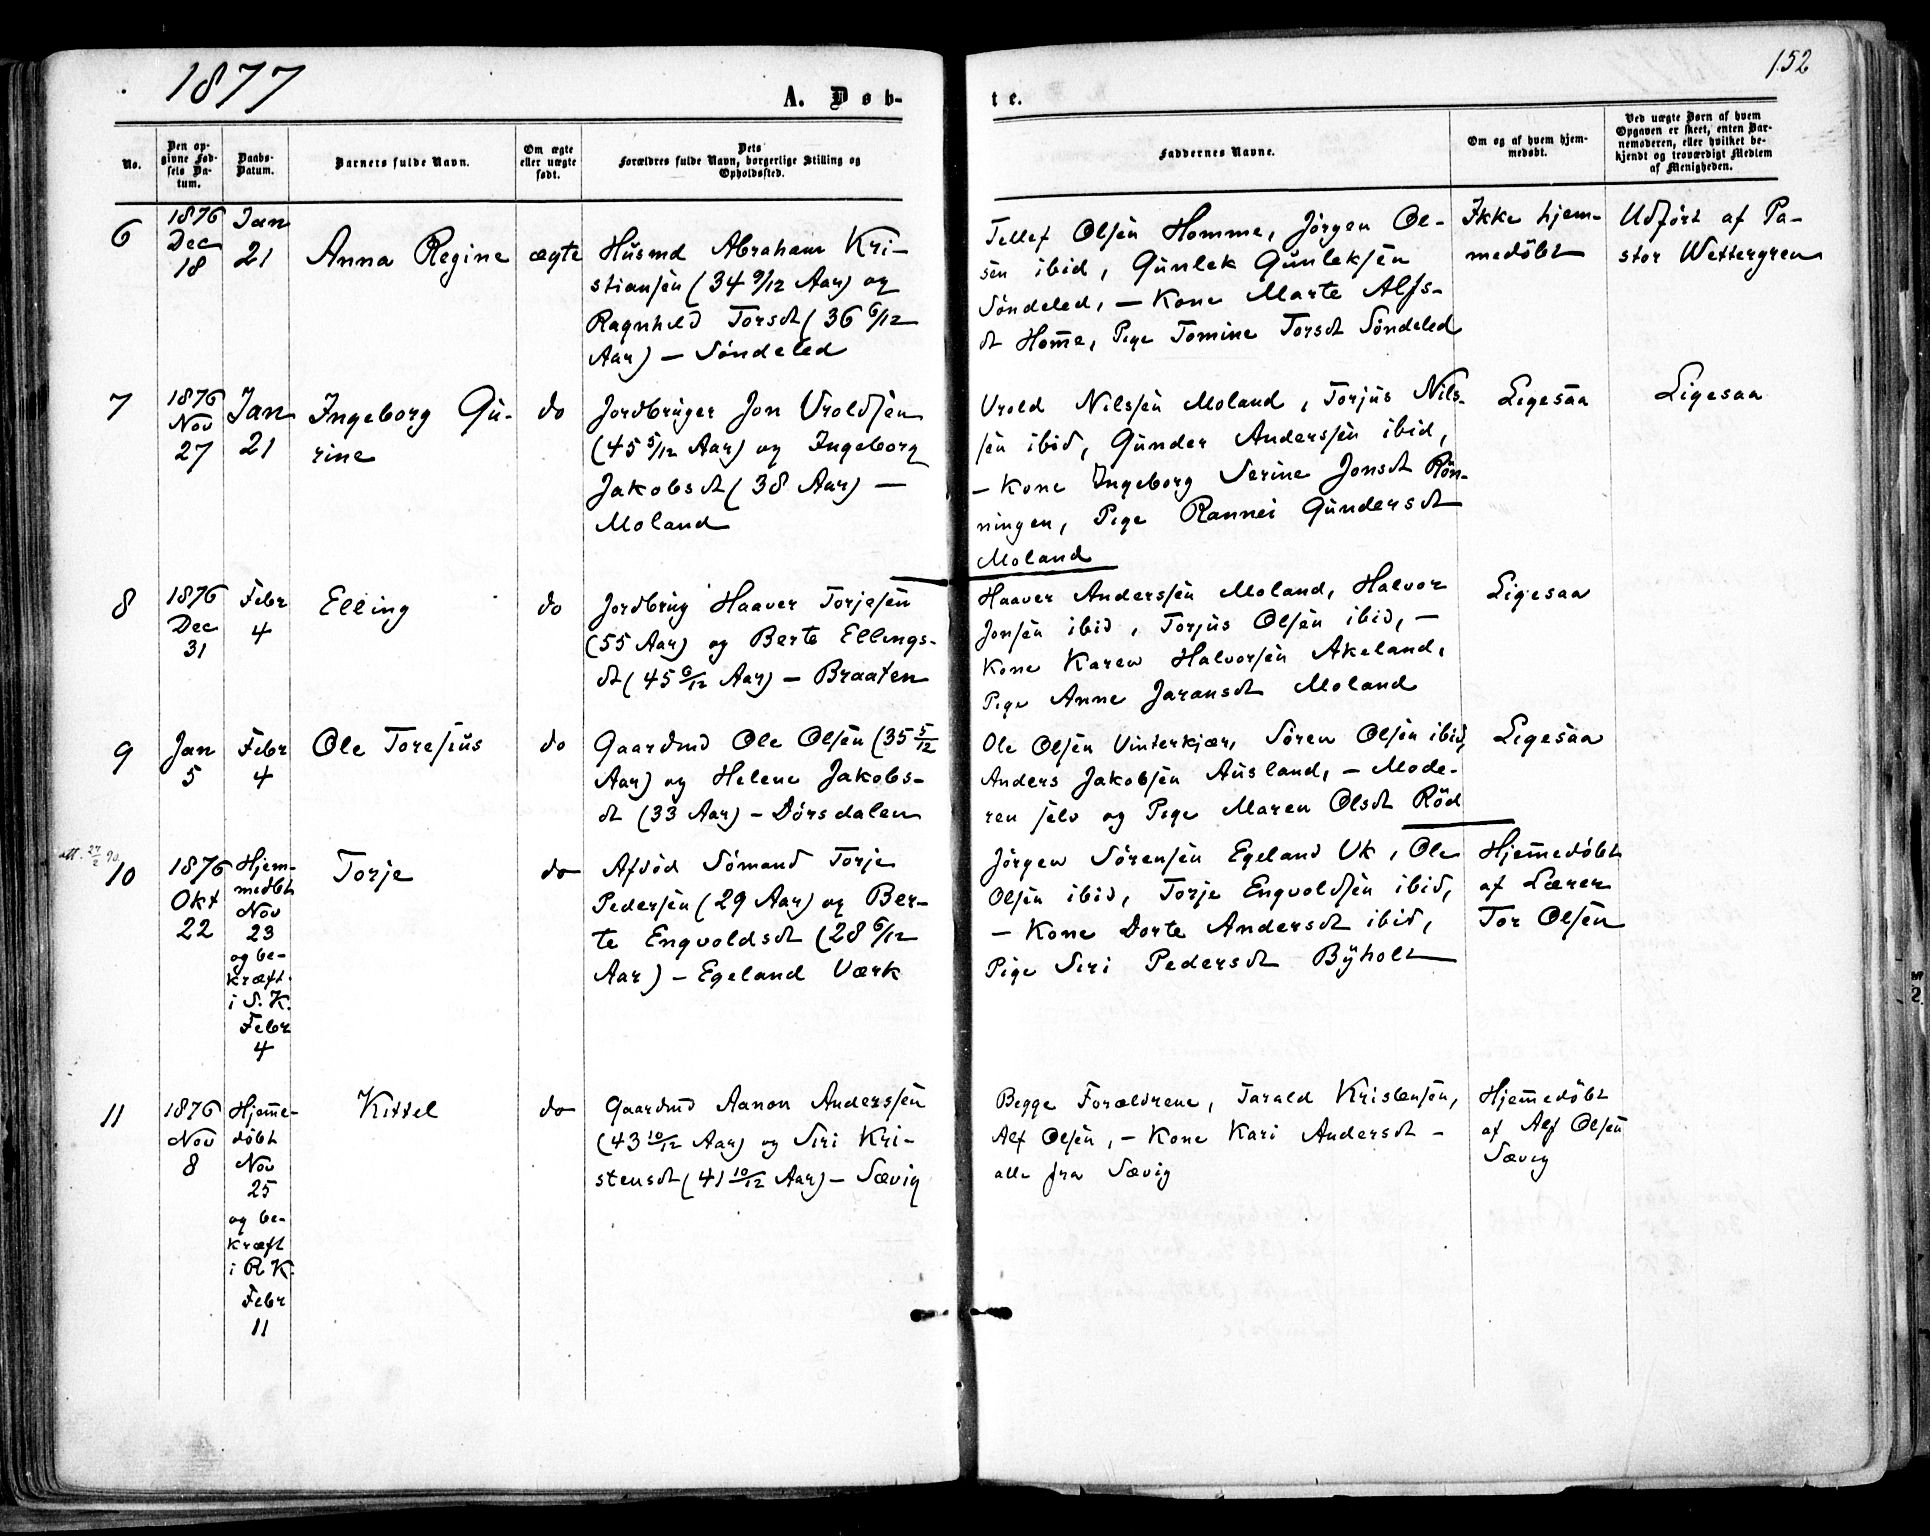 1877
152
A. Døb-
te.
No.
Den op-
givne Fød-
sels Da-
tum.
Daabs-
Datum.
Barnets fulde Navn.
Om ægte
eller uægte
født.
Dets
Forældres fulde Navn, borgerlige Stilling og
Opholdssted.
Faddernes Navne.
Om og af hvem hjem-
medøbt.
Ved uægte Børn af hvem
Opgaven er skeet, enten Bar-
nemoderen, eller hvilket be-
kjendt og troværdigt Medlem
af Menigheden.
6
1876
Dec
18
Jan
21
Anna Regine
ægte
Husmd Abraham Kri-
stiansen (34 9/12 Aar) og
Ragnhild Torsdt (36 6/12
Aar) — Söndeled
Tellef Olsen Homme, Jörgen Ol-
sen ibid, Gunlek Gunleksen
Söndeled, — Kone Marte Alfs-
dt Home, Pige Tomine Torsdt Söndeled
Ikke hjem-
medöbt
Udfört af Pa-
stor Wettergren
7
1876
Nov
27
Jan
21
Ingeborg Gu-
rine
do
Jordbruger Jon Uroldsen
(45 5/12 Aar) og Ingeborg
Jakobsdt (38 Aar) —
Moland
Urold Nilssen Moland, Torjus Nils-
sen ibid, Gunder Anderssen ibid,
— Kone Ingeborg Serine Jonsdt Rön-
ningen, Pige Rannei Gundersdt
Moland
Ligesaa
Ligesaa
8
1876
Dec
31
Febr
4
Elling
do
Jordbrug Haaver Torjesen
(55 Aar) og Berte Ellings-
dt (45 6/12 Aar) — Braaten
Haaver Anderssen Moland, Halvor
Jonsen ibid, Torjus Olsen ibid, —
Kone Karen Halvorsen Akeland,
Pige Anne Jaransdt Moland
Ligesaa
9
Jan
5
Febr
4
Ole Toresius
do
Gaardmd Ole Olsen (35 5/12
Aar) og Helene Jakobs-
dt (33 Aar) — Dörsdalen
Ole Olsen Vinterkjær, Sören Olsen ibid,
Anders Jakobsen Ausland, — Mode-
ren selv og Pige Maren Olsdt Röd
Ligesaa
att. 27/2 90.
10
1876
Okt
22
Hjem-
medbt
Nov
23
og be-
kræft.
i S. K.
Febr
4
Torje
do
Afdöd Sömand Torje
Pedersen (29 Aar) og Ber-
te Engvoldsdt (28 6/12
Aar) — Egeland Værk
Jörgen Sörensen Egeland Vk, Ole
Olsen ibid, Torje Engvoldsen ibid,
— Kone Dorte Andersdt ibid,
Pige Siri Pedersdt Byholt
Hjemedöbt
af Lærer
Tor Olsen
11
1876
Nov
8
Hjeme-
döbt
Nov
25
og be-
kræft
i R K.
Febr
11
Kittel
do
Gaardmd Aanon Anderssen
(43 10/12 Aar) og Siri Kri-
stensdt (41 10/12 Aar) — Sævig
Begge Forældrene, Tarald Kristensen,
Alf Olsen, — Kone Kari Andersdt —
alle fra Sævig
Hjemedöbt
af Alf Olsen
Sævig